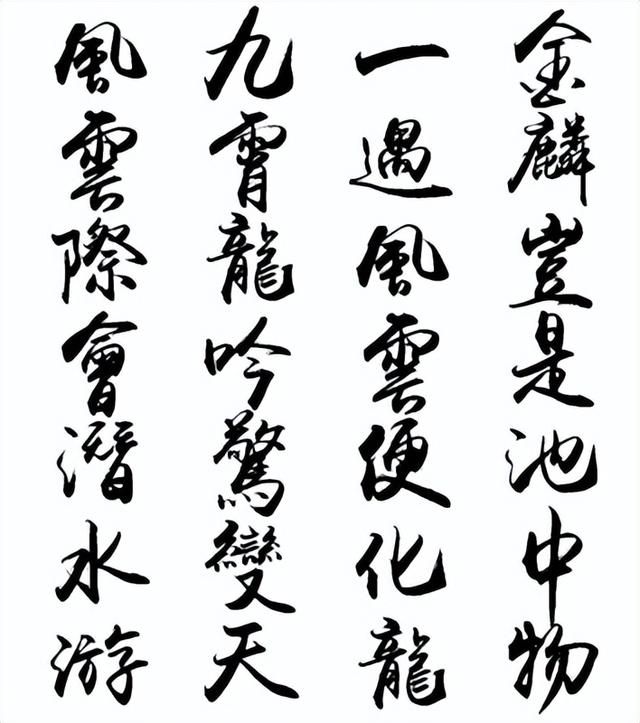 金麟豈是池中物
一遇風雲便化龍
九霄龍吟驚變天
風雲際會潛水游